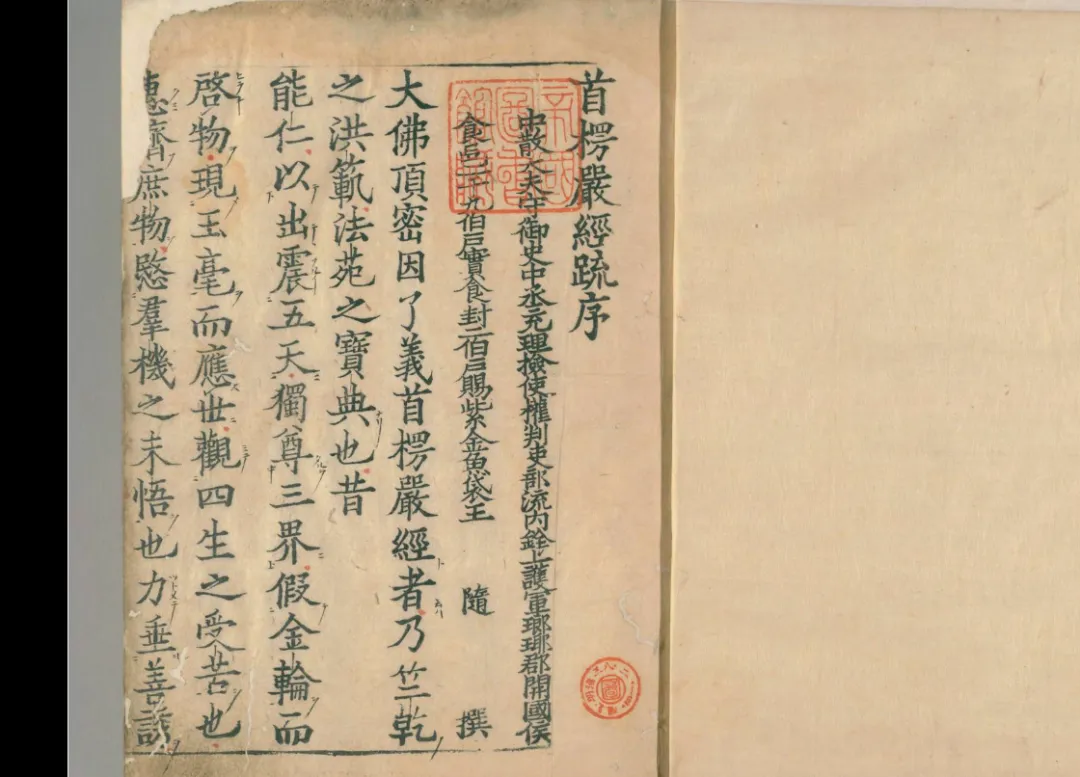 首楞嚴經䟽序
中散大夫守御史中丞充理檢使權判吏部流內銓上護軍瑯琊郡開國侯
食邑一千九伯戶實食封二伯戶賜紫金魚袋王 隨 撰
大佛頂密因了義首楞嚴經者乃竺乾
之洪範法苑之寶典也昔
能仁以出震五天獨尊三界假金輪而
啓物現玉毫而應世觀四生之受苦也
惠濟庶物愍羣機之未悟也力垂善誘